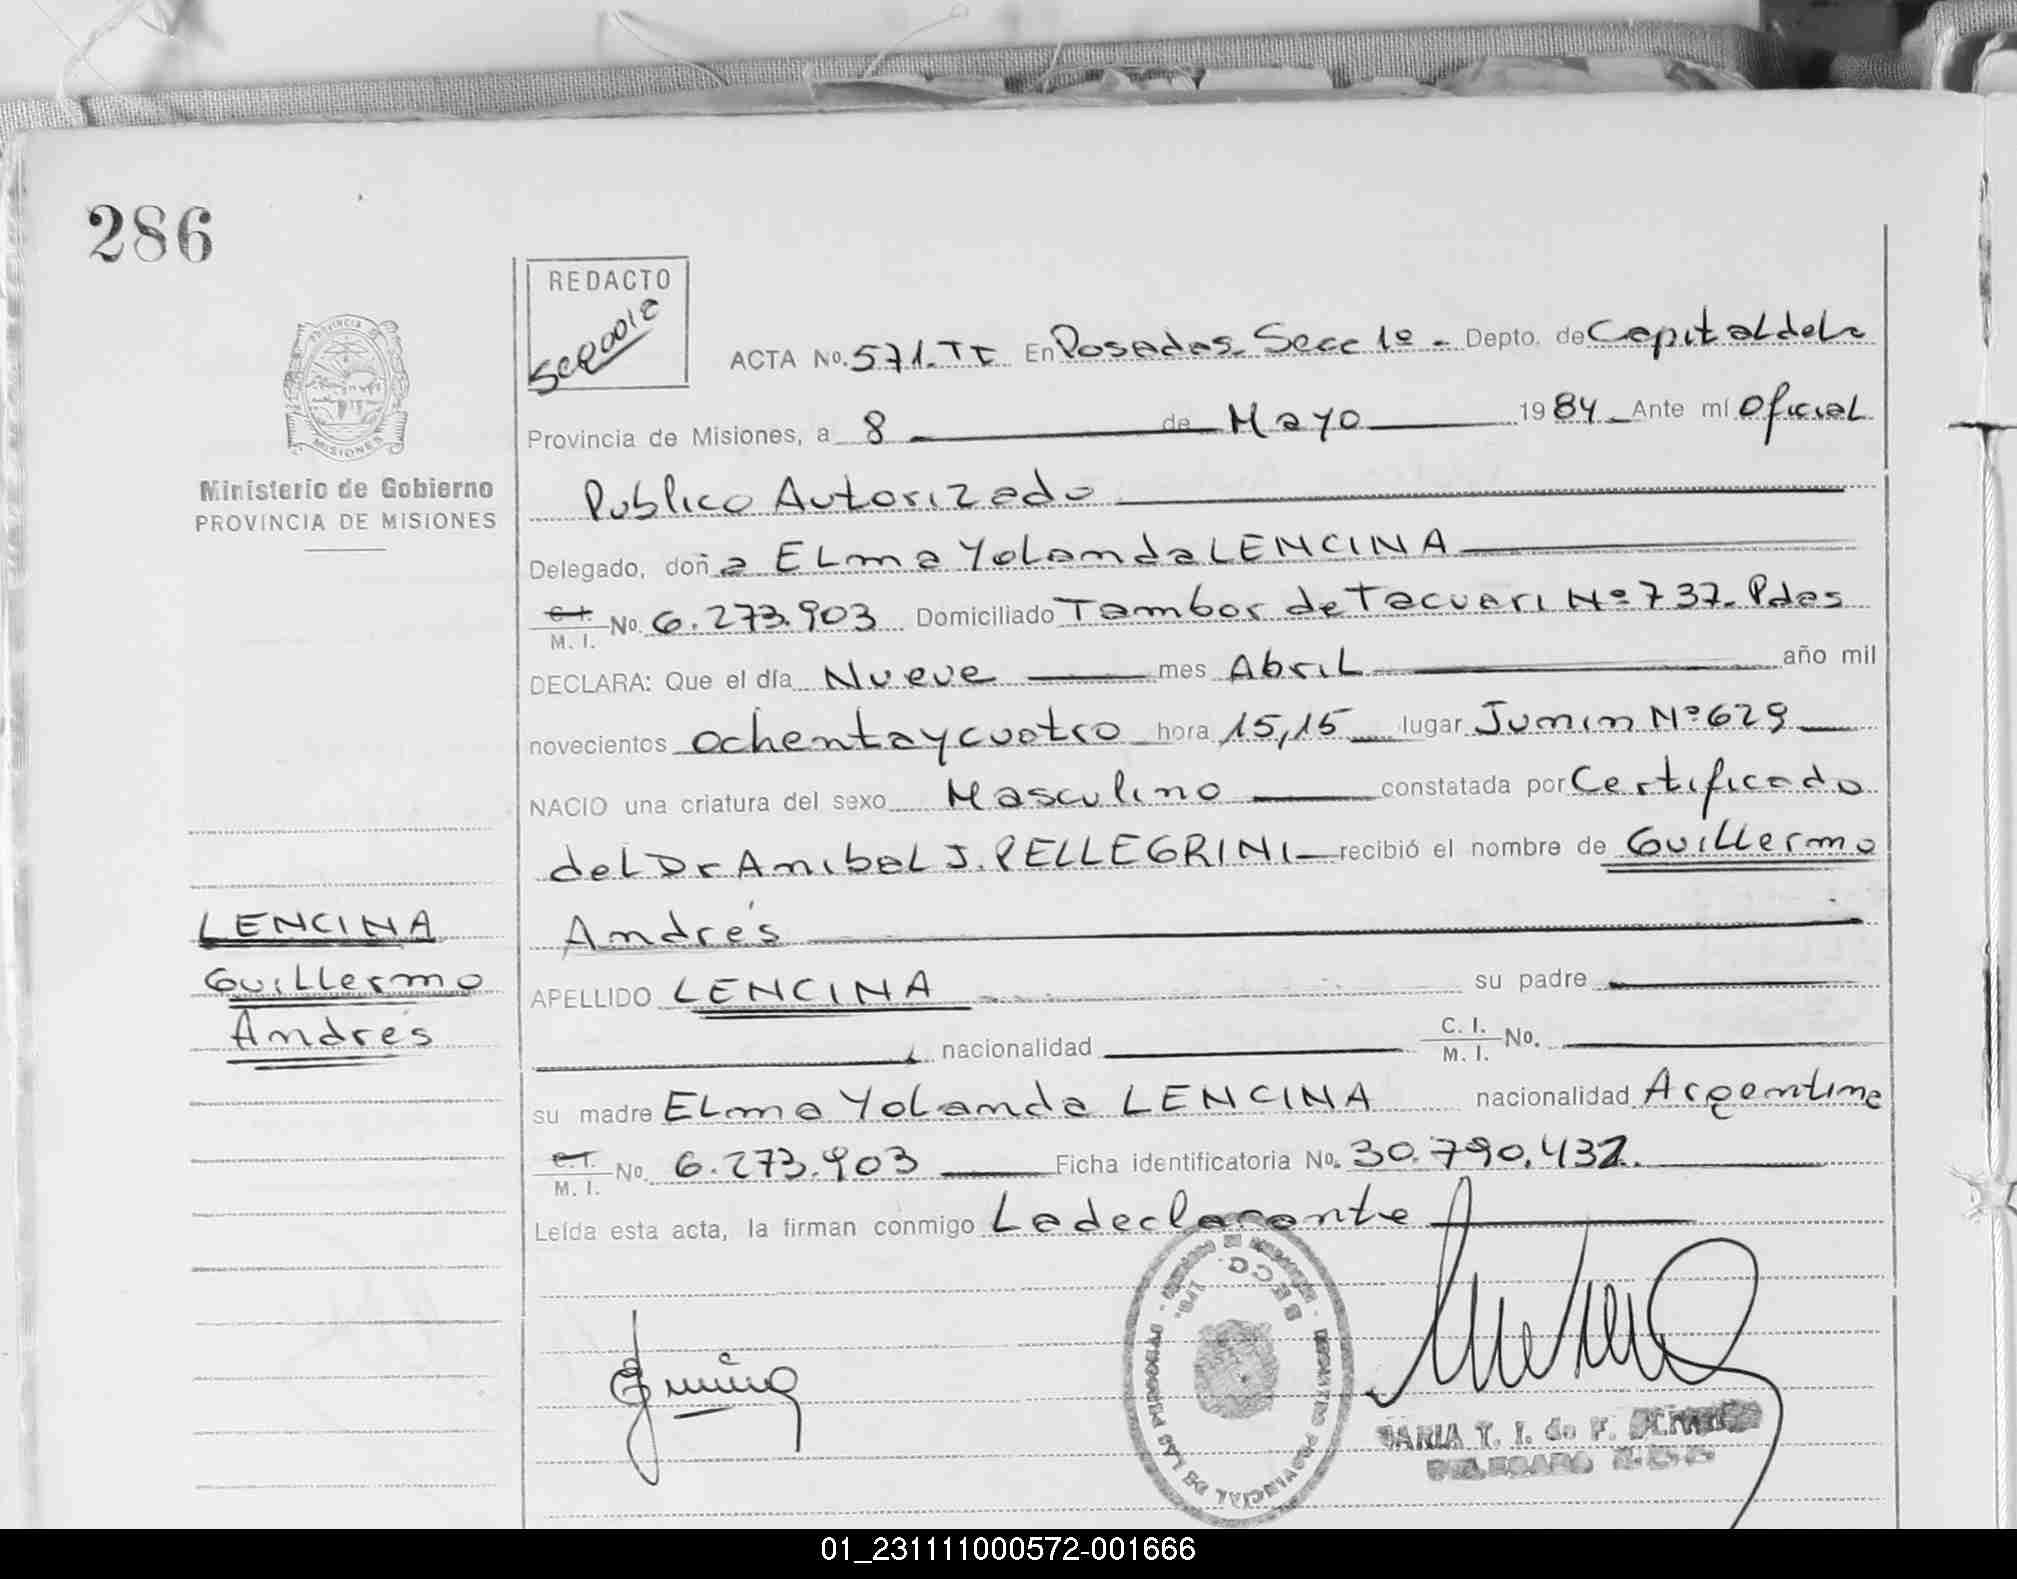 286
REDACTO
PROVINCIA DE
MISIONES
Ministerio de Gobierno
PROVINCIA DE MISIONES
ACTA No. 571. TI En Posadas Secc 1º - Depto. de Capital de La
Provincia de Misiones, a 8 de Mayo 1984 Ante mí Oficial
Publico Autorizado
Delegado, doña ELma Yolanda LENCINA
C. I.
M. I. No. 6.273.903 Domiciliado Tambor de Tacuari Nº 737. Pdas
DECLARA: Que el día Nueve mes Abril año mil
novecientos ochenta y cuatro hora 15,15 lugar Junin Nº 629
NACIO una criatura del sexo Masculino constatada por Certificado
del Dr Anibal J. PELLEGRINI recibió el nombre de Guillermo
Andrés
LENCINA
Guillermo
Andrés
APELLIDO LENCINA su padre
, nacionalidad C. I.
M. I. No.
su madre ELma Yolanda LENCINA nacionalidad Argentina
C. I.
M. I. No. 6.273.903 Ficha identificatoria No. 30.790.432.
Leída esta acta, la firman conmigo La declarante
REGISTRO PROVINCIAL DE LAS PERSONAS
SECC.
1ra.
MARIA T. I. de F.
DELEGADO
01_231111000572-001666